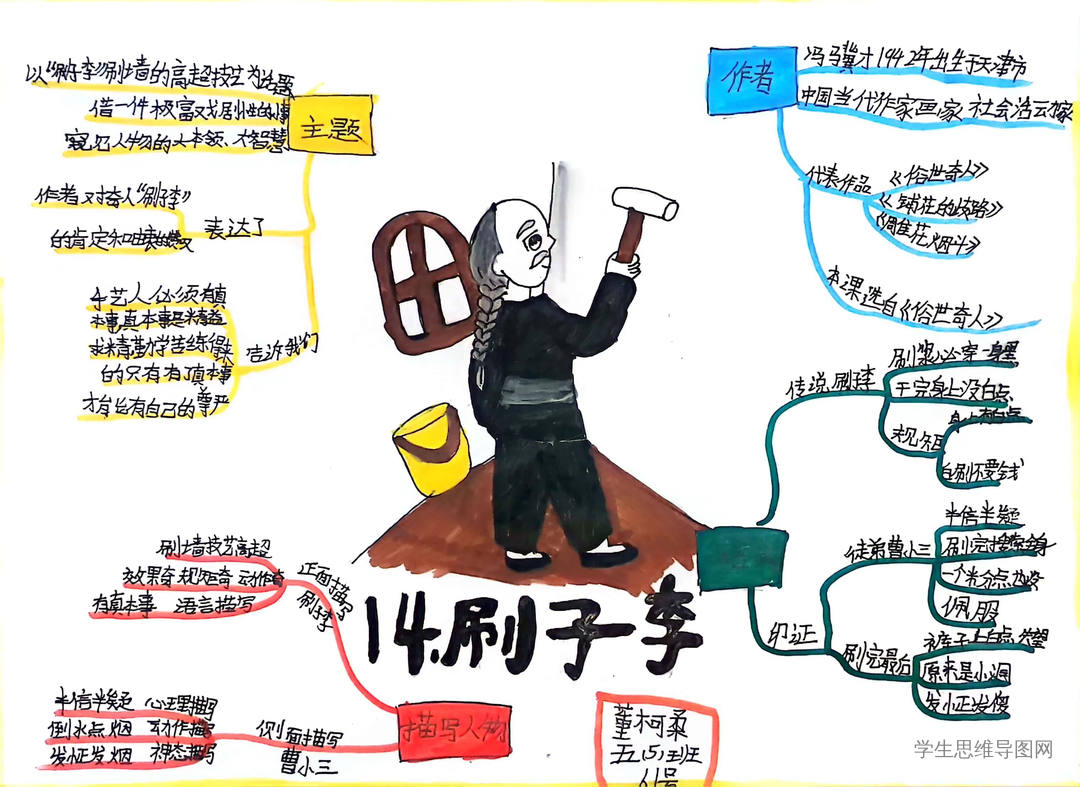 主题
以“刷子李”刷墙的高超技艺为话题
借一件极富戏剧性的小事
窥见人物的大本领、大智慧
表达了
作者对奇人“刷子李”
的肯定和由衷的赞叹
告诉我们
手艺人必须有真
本事真本事是精益
求精勤学苦练得来
的只有有了真本事
才能有自己的尊严
作者
冯骥才1942年出生于天津市
中国当代作家画家 社会活动家
代表作品
《俗世奇人》
《铺花的歧路》
《雕花烟斗》
本课选自《俗世奇人》
传说刷子李
刷浆必穿一身黑
干完身上没白点
规矩
身上有白点
白刷不要钱
印证
徒弟曹小三
半信半疑
佩服
刷完最后
裤子上白点 失望
原来是小洞
发怔发傻
14.刷子李
描写人物
正面描写
刷子李
刷墙技艺高超
效果奇 规矩奇 动作奇
有真本事 语言描写
侧面描写
曹小三
半信半疑 心理描写
倒水点烟 动作描写
发怔发烟 神态描写
董柯柔
五(5)班
学生思维导图网